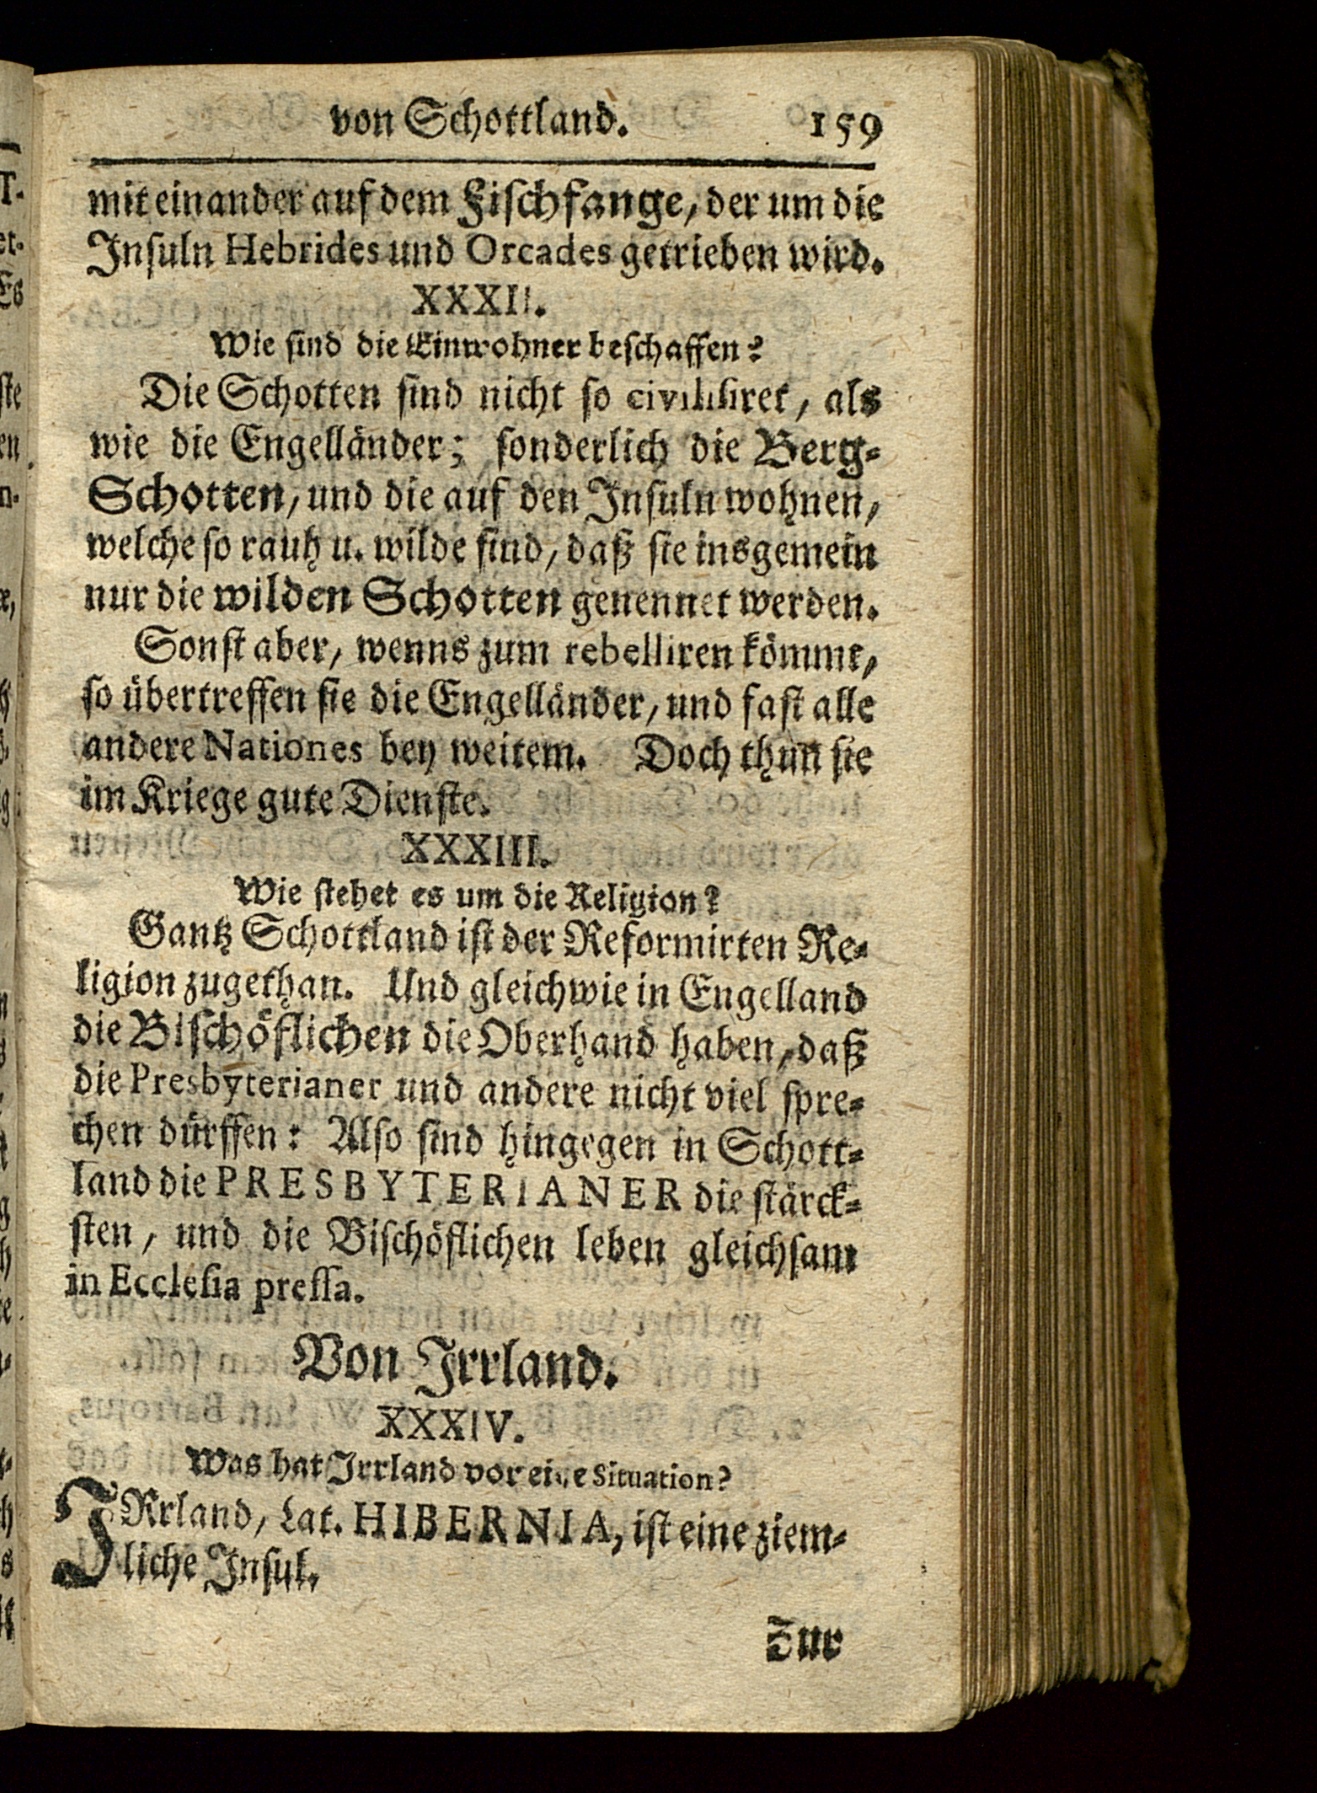 von Schottland. 159
mit einander auf dem Fischfange, der um die
Insuln Hebrides und Orcades getrieben wird.
XXXII.
Wie sind die Einwohner beschaffen?
Die Schotten sind nicht so civilisiret, als
wie die Engelländer; sonderlich die Berg-
Schotten, und die auf den Insuln wohnen,
welche so rauh u. wilde sind, daß sie insgemein
nur die wilden Schotten genennet werden.
Sonst aber, wenns zum rebelliren kömmt,
so übertreffen sie die Engelländer, und fast alle
andere Nationes bey weitem. Doch thun sie
im Kriege gute Dienste.
XXXIII.
Wie stehet es um die Religion?
Gantz Schottland ist der Reformirten Re-
ligion zugethan. Und gleichwie in Engelland
die Bischöflichen die Oberhand haben, daß
die Presbyterianer und andere nicht viel spre-
chen dürffen: Also sind hingegen in Schott-
land die PRESBYTERIANER die stärck-
sten, und die Bischöflichen leben gleichsam
in Ecclesia pressa.
Von Irrland.
XXXIV.
Was hat Irrland vor eine Situation?
IRrland, Lat. HIBERNIA, ist eine ziem-
liche Insul.
Zur